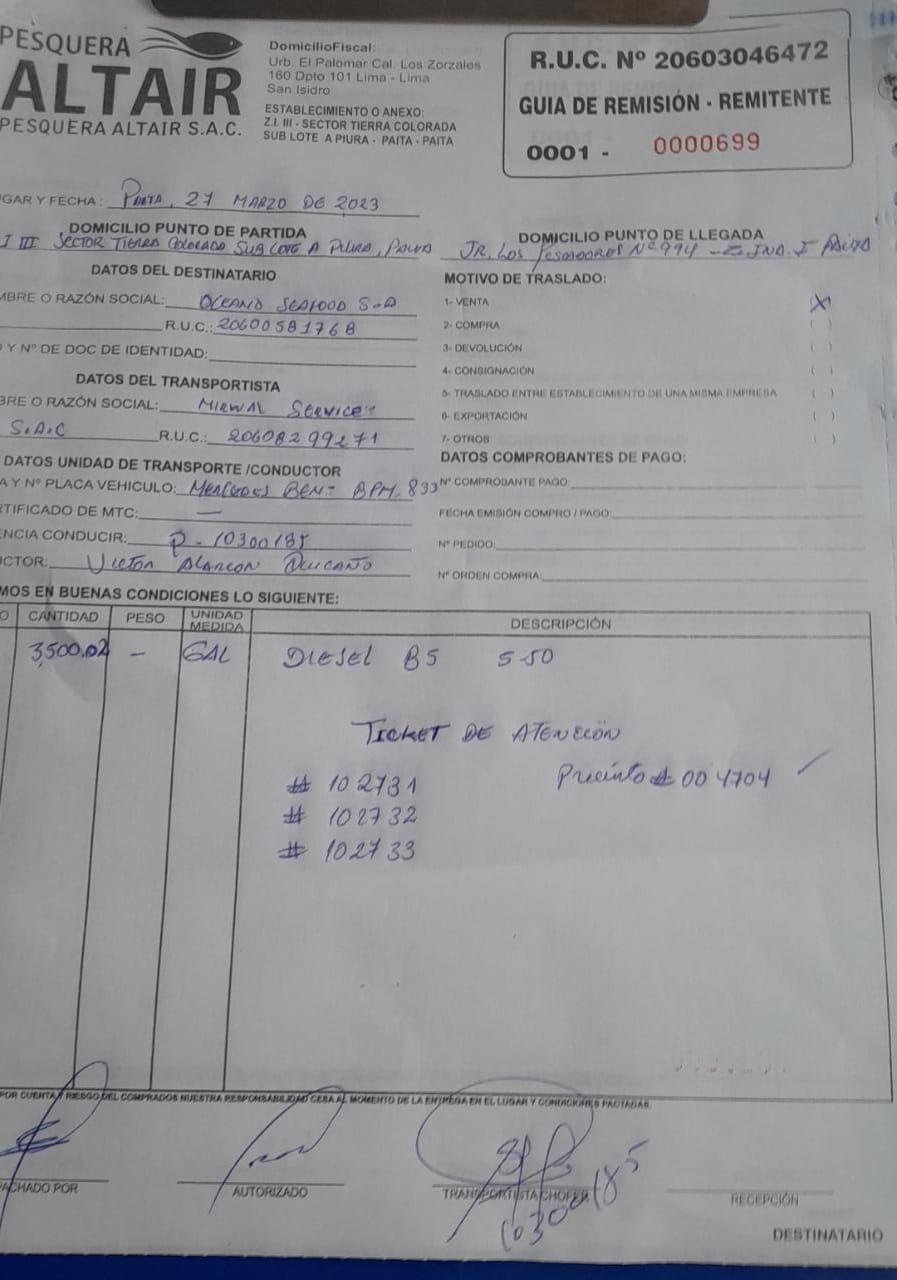 PESQUERA
ALTAIR
PESQUERA ALTAIR S.A.C.
DomicilioFiscal:
Urb. El Palomar Cal. Los Zorzales
160 Dpto 101 Lima - Lima
San Isidro
ESTABLECIMIENTO O ANEXO:
Z.I. III - SECTOR TIERRA COLORADA
SUB LOTE A PIURA - PAITA - PAITA
R.U.C. Nº 20603046472
GUIA DE REMISIÓN - REMITENTE
0001 - 0000699
GAR Y FECHA: Paita, 27 MARZO DE 2023
DOMICILIO PUNTO DE PARTIDA
I III SECTOR TIERRA COLORADA SUB LOTE A PIURA, PAITA
DOMICILIO PUNTO DE LLEGADA
JR. LOS PESCADORES Nº 994 - Z. IND. I PAITA
DATOS DEL DESTINATARIO
MBRE O RAZÓN SOCIAL: OCEANO SEAFOOD S.A
R.U.C.: 20600581768
Y Nº DE DOC DE IDENTIDAD:
DATOS DEL TRANSPORTISTA
BRE O RAZÓN SOCIAL: MIRWAL SERVICES
S.A.C R.U.C.: 20608299271
DATOS UNIDAD DE TRANSPORTE /CONDUCTOR
A Y Nº PLACA VEHICULO: MERCEDES BEN- BPM. 833
TIFICADO DE MTC: —
ENCIA CONDUCIR: P - 10300185
CTOR: VICTOR ALARCON
MOTIVO DE TRASLADO:
1- VENTA X
2- COMPRA ( )
3- DEVOLUCIÓN ( )
4- CONSIGNACIÓN ( )
5- TRASLADO ENTRE ESTABLECIMIENTO DE UNA MISMA EMPRESA ( )
6- EXPORTACIÓN ( )
7- OTROS ( )
DATOS COMPROBANTES DE PAGO:
Nº COMPROBANTE PAGO:
FECHA EMISIÓN COMPRO / PAGO:
Nº PEDIDO:
Nº ORDEN COMPRA:
MOS EN BUENAS CONDICIONES LO SIGUIENTE:
O CANTIDAD PESO UNIDAD MEDIDA DESCRIPCIÓN
3,500.02 - GAL DIESEL B5 S-50
TICKET DE ATENCIÓN
# 102731 Precinto # 004704
# 102732
# 102733
POR CUENTA Y RIESGO DEL COMPRADOS NUESTRA RESPONSABILIDAD CESA AL MOMENTO DE LA ENTREGA EN EL LUGAR Y CONDICIONES PACTADAS.
PACHADO POR
AUTORIZADO
TRANSPORTISTA CHOFER
10300185
RECEPCIÓN
DESTINATARIO